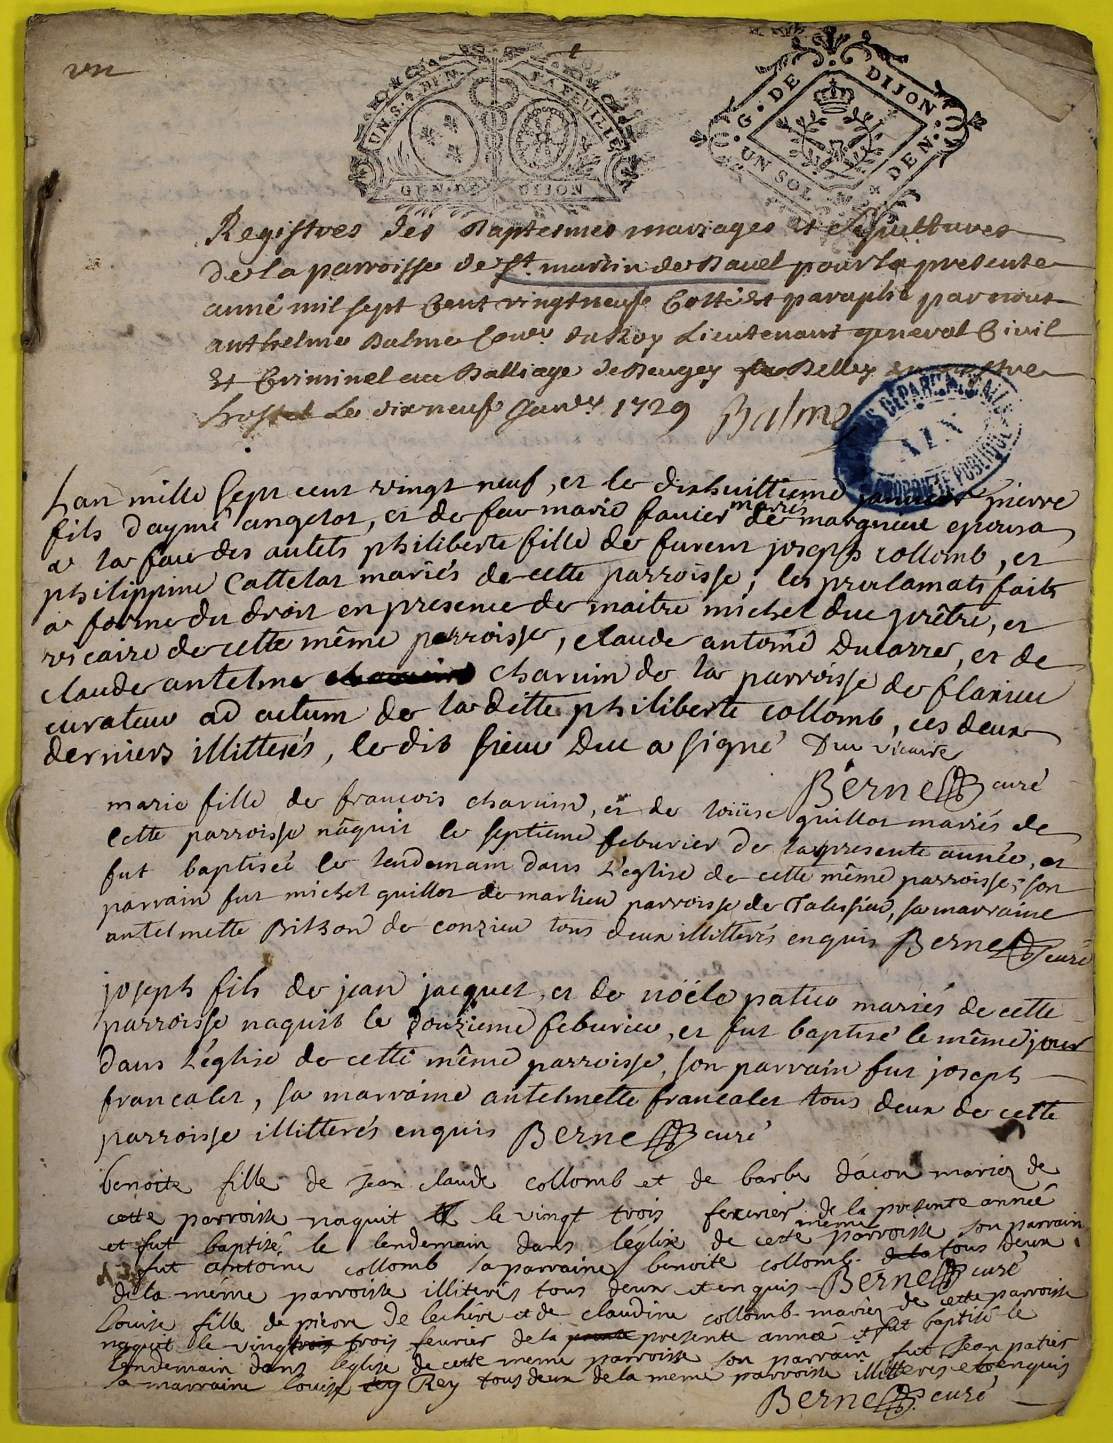 vn
UN.S.4.DEN. LA FEUILLE
GEN. DE DIJON
G. DE DIJON.
UN SOL 4 DEN.
Registres des Baptesmes mariages et Sepultures
de la parroisse de St. martin de Bavel pour la presente
anné mil sept Cent vingt neuf Cotté et paraphé par nous
anthelme Balme Coner. du Roy Lieutenant general Civil
Et Criminel au Balliage de Beugey Belley en nostre
hostel Le dixneuf Janer. 1729 Balme
DEPARTEMENTALES AIN PROPRIETE PUBLIQUE
Lan mille Sept cent vingt neuf, et le dixhuittieme janvier pierre
fils d'aymé angelot, et de feu marie favier mariés de marignieu epousa
a la face des autels philiberte fille de furent joseph collomb, et
philippine Cattelat mariés de cette parroisse, les proclamats faits
a forme du droit en presence de maitre michel duc prêtre, et
vicaire de cette même parroisse, claude antoine Ducarre, et de
claude antelme charvin de la parroisse de flaxieu
curateur ad actum de la ditte philiberte collomb, ces deux
derniers illitterés, le dit sieur Duc a signé Duc vicaire
Berne curé
marie fille de françois charvin, et de loüise guillot mariés de
cette parroisse nâquit le septieme feburier de la presente année, et
fut baptisée le lendemain dans l'église de cette même parroisse, son
parrain fut michel guillot de marlieu parroisse de Talissieu, sa marraine
antelmette Brison de conzieu tous deux illitterés enquis Berne curé
joseph fils de jean jacquet, et de noële patieu mariés de cette
parroisse naquit le douzieme feburier, et fut baptisé le même jour
dans l'église de cette même parroisse, son parrain fut joseph
francalet, sa marraine antelmette francalet tous deux de cette
parroisse illitterés enquis Berne curé
benoite fille de jean claude collomb et de barbe dacon mariez de
cette parroisse naquit le vingt trois fevrier de la presente année
et fut baptisé le lendemain dans léglise de cette même parroisse son parrain
fut antoine collomb sa parraine benoite collomb tous deux
de la même parroisse illiterés tous deux et enquis Berne curé
Louise fille de pierre de lechère et de claudine collomb mariez de cette parroisse
naquit le vingt trois fevrier de la presente année et fut baptisé le
lendemain dans léglise de cette meme parroisse son parrain fut Jean patier
sa marraine louise Rey tous deux de la meme parroisse illitteres et enquis
Berne curé